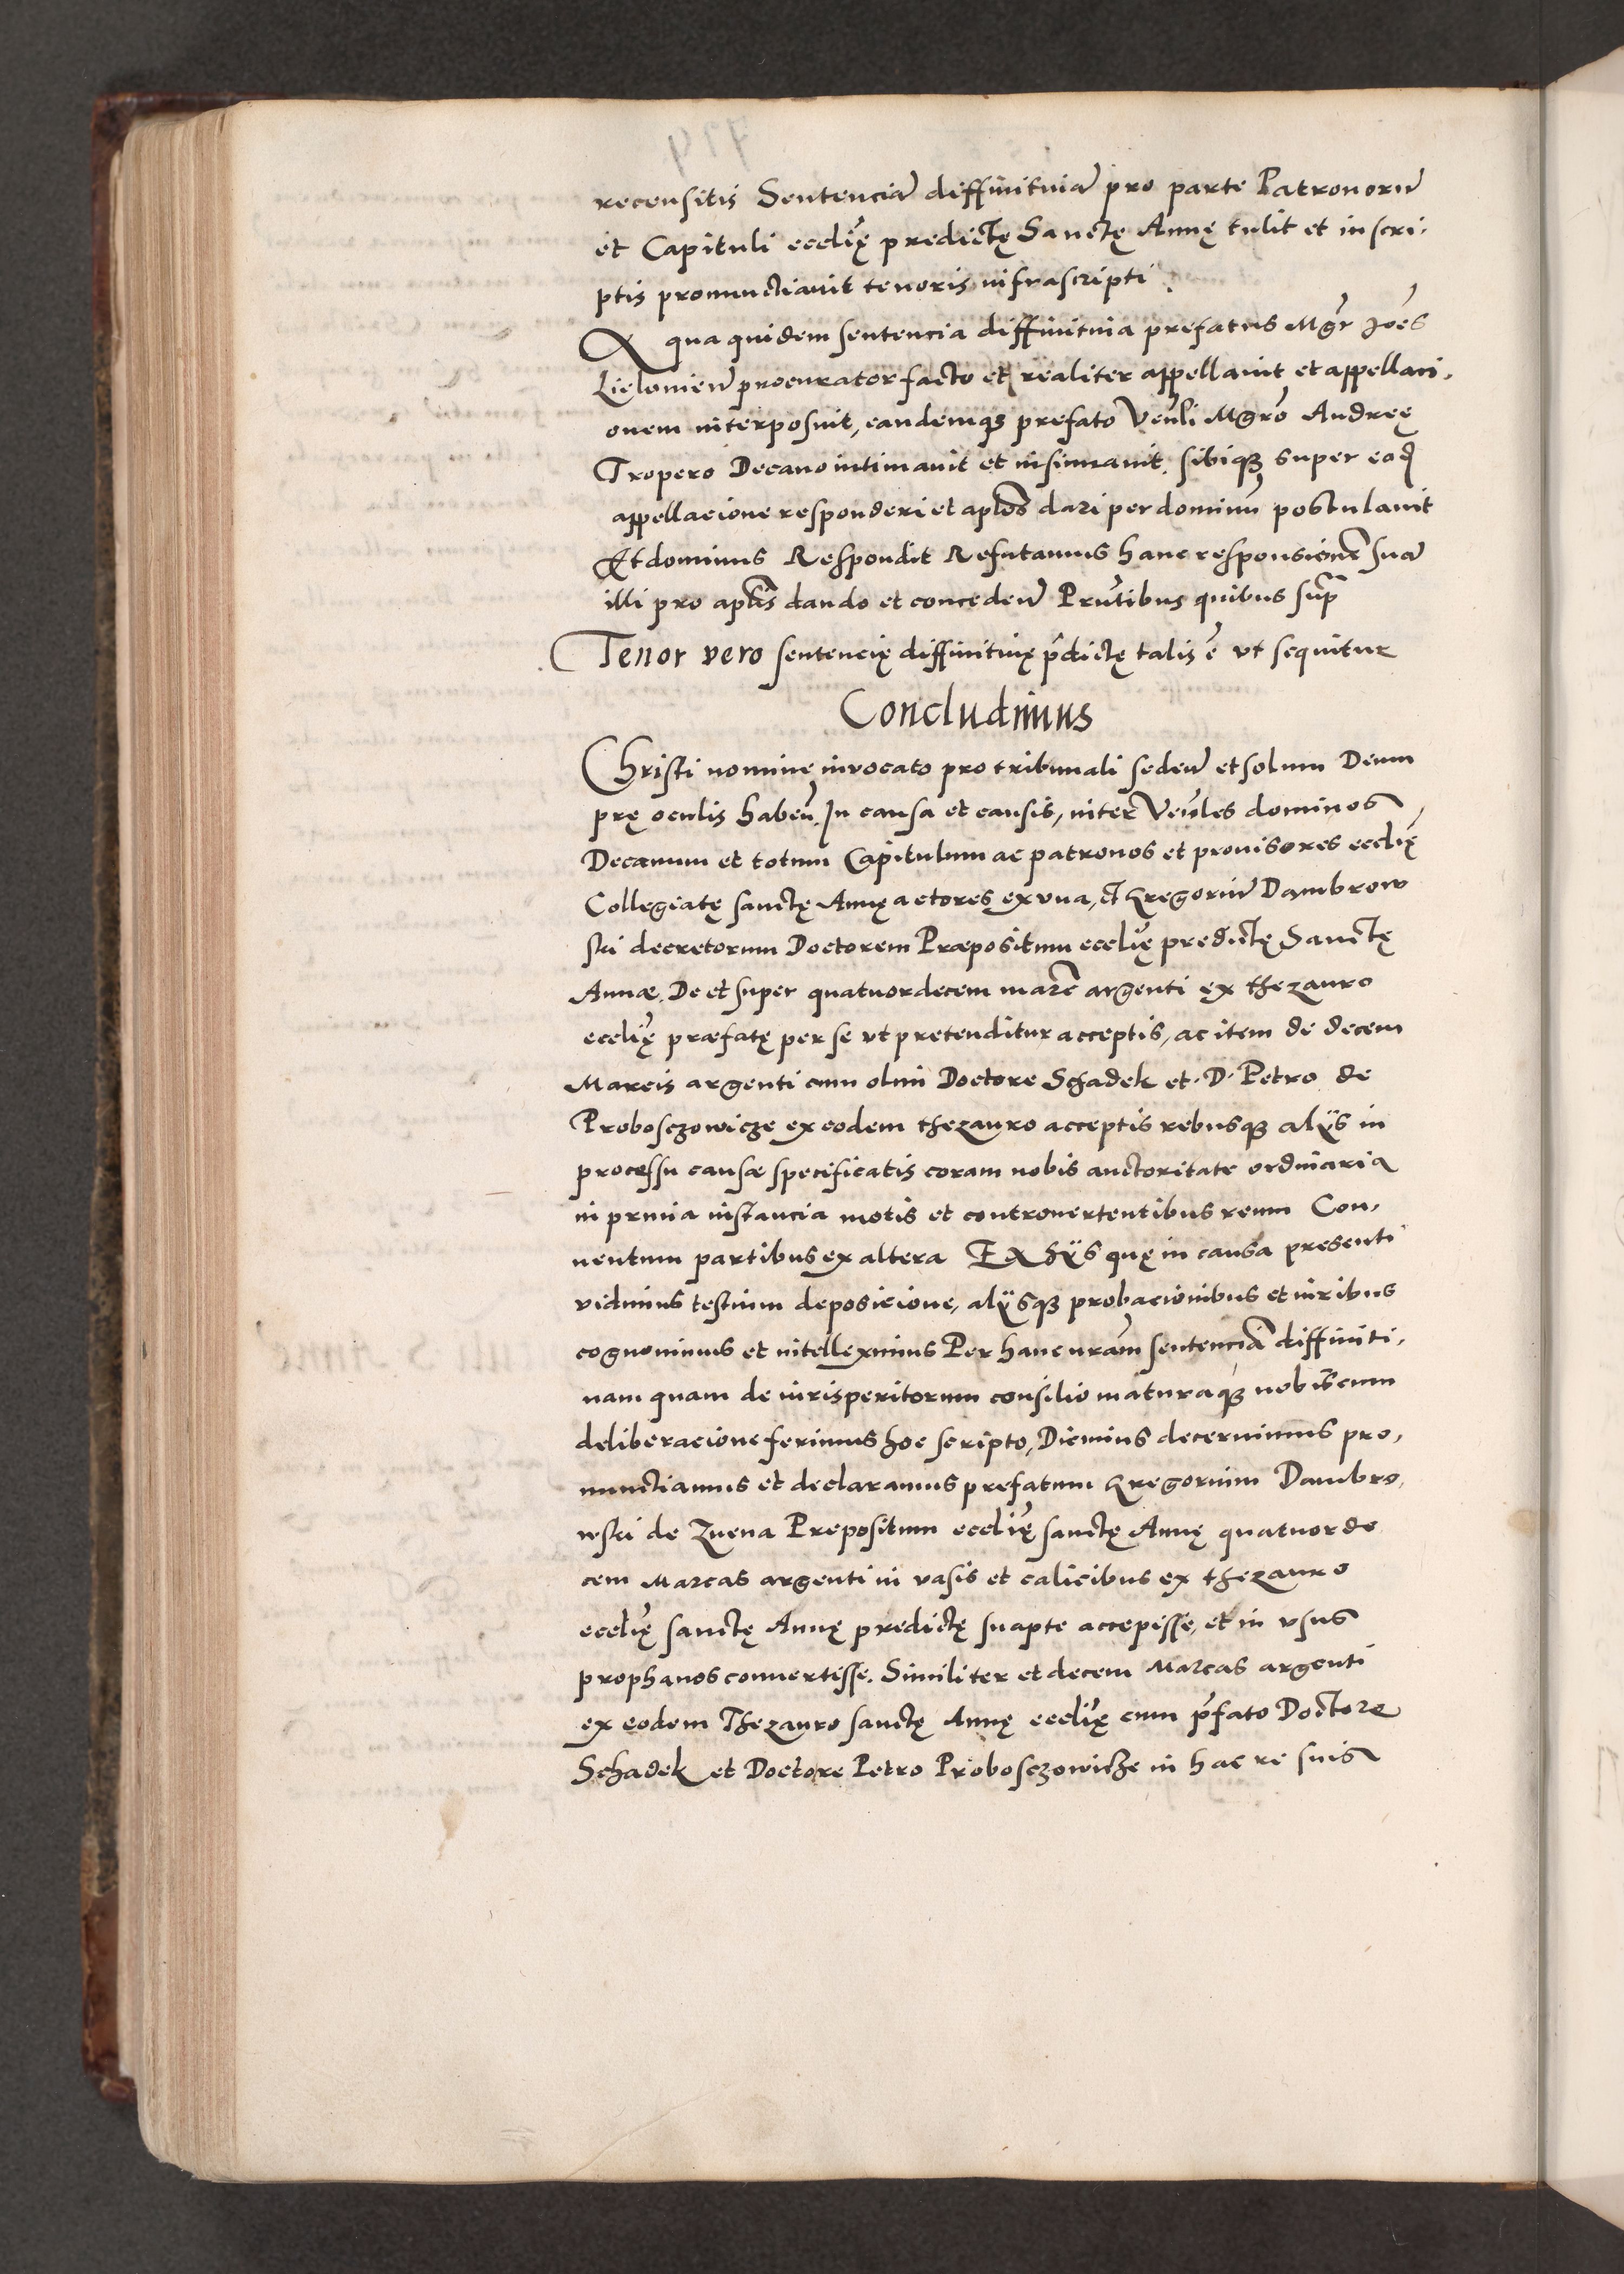 recensitis Sentenciā diffinitiuā pro parte Patronorū
et Capituli eccliȩ̄ predictȩ Sanctȩ Annȩ tulit et in scri-
ptis pronunctiauit tenoris infrascripti.
A qua quidem sentencia diffinitiua prefatus Mgr̄ Joēs
procurator facto et realiter appellauit et appellaci-
onem interposuit, eandemqȝ prefato Veñli Mgrō Andreȩ
Tropero Decano intimauit et insinuauit. sibiqȝ super ead
appellacione responderi et aplōs dari per dominū postulauit
Et dominus Respondit Refutamus hanc responsionē suā
illi pro aplīs dando et concedeñ Prñtibus quibus supᵃ
Tenor vero sentenciȩ diffinitiuȩ p̄dictȩ talis ē vt sequitur
Concludimus
Christi nomine inuocato pro tribunali sedeñ et solum Deum
prȩ oculis habeñ. In causa et causis, inter Veñles dominos
Decanum et totum Capitulum ac patronos et prouisores eccliȩ̄
Collegiatȩ sanctȩ Annȩ actores ex vna, et Gregoriū Dambrow
ski decretorum Doctorem Præpositum eccliȩ̄ predictȩ Sanctȩ
Annæ. De et super quatuordecem marc̄ argenti ex thezauro
eccliȩ̄ præfatȩ per se vt pretenditur acceptis, ac item de decem
Marcis argenti cum olim Doctore Schadek et .D. Petro de
Proboszowicze ex eodem thezauro acceptis rebusqȝ alÿs in
processu causæ specificatis coram nobis auctoritate ordinaria
in prima instancia motis et controuertentibus reum Con-
uentum partibus ex altera Ex hÿs quȩ in causa presenti
vidimus testium deposicione, alÿsqȝ probacionibus et iuribus
cognouimus et intelleximus Per hanc nrām sentenciā diffiniti-
uam quam de iurisperitorum consilio maturaqȝ nobiscum
deliberacione ferimus hoc scripto, Dicimus decernimus pro-
nunctiamus et declaramus prefatum Gregorium Dambro-
wski de Zuena Prepositum eccliȩ̄ sanctȩ Annȩ quatuorde
cem Marcas argenti in vasis et calicibus ex thezauro
eccliȩ̄ sanctȩ Annȩ predictȩ suapte accepisse, et in vsus
prophanos conuertisse. Similiter et decem Marcas argenti
ex eodem Thezauro sanctȩ Annȩ eccliȩ̄ cum p̄fato Doctore
Schadek et Doctore Petro Proboszowicze in hac re suis